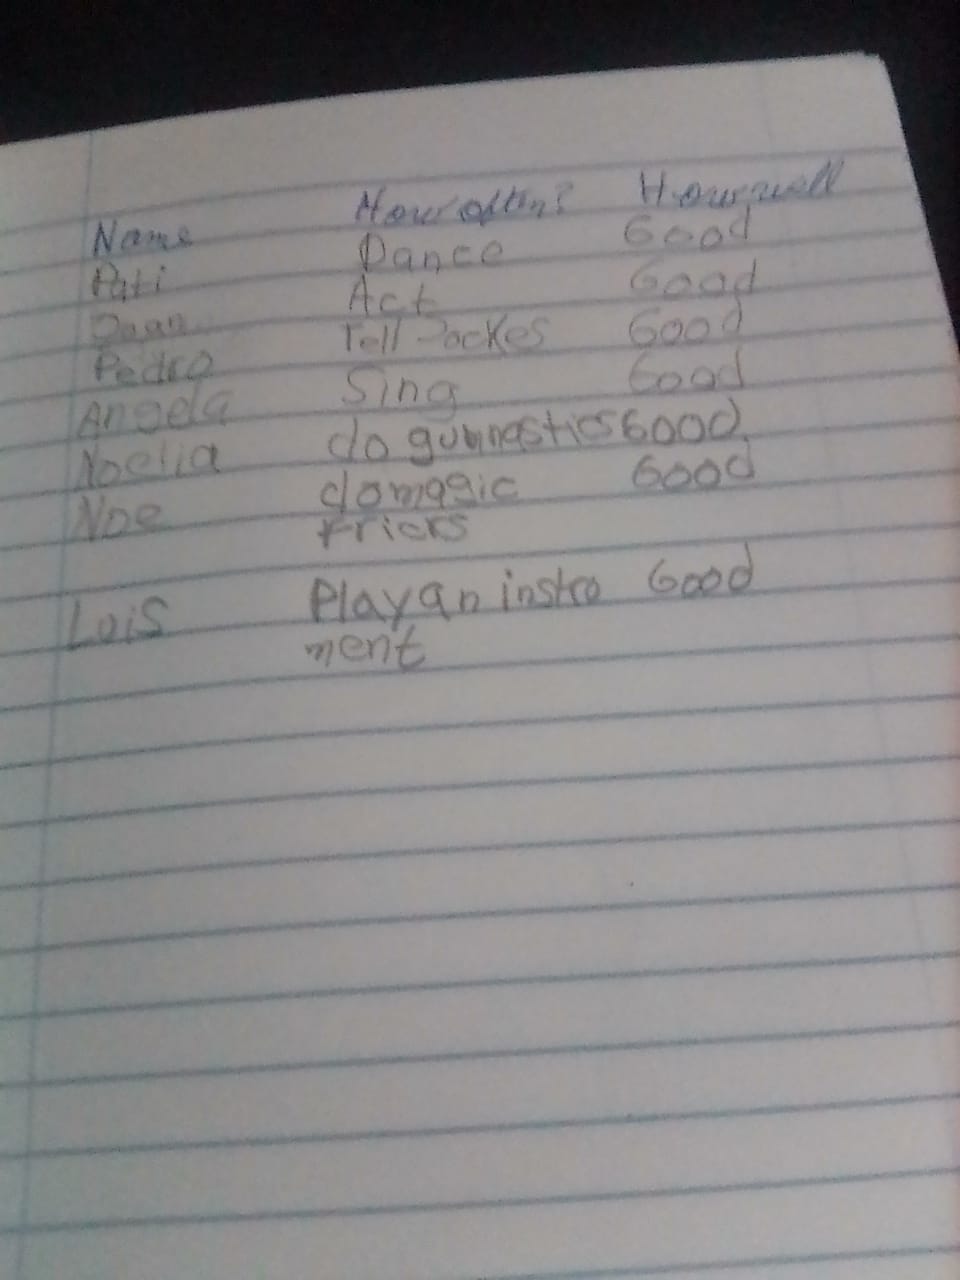 Name How often? How well
Pati Dance Good
Juan Act Good
Pedro Tell Jockes Good
Angela Sing Good
Noelia do gumnastics Good
Noe do maguic Good
tricks
Luis Play an instro Good
ment